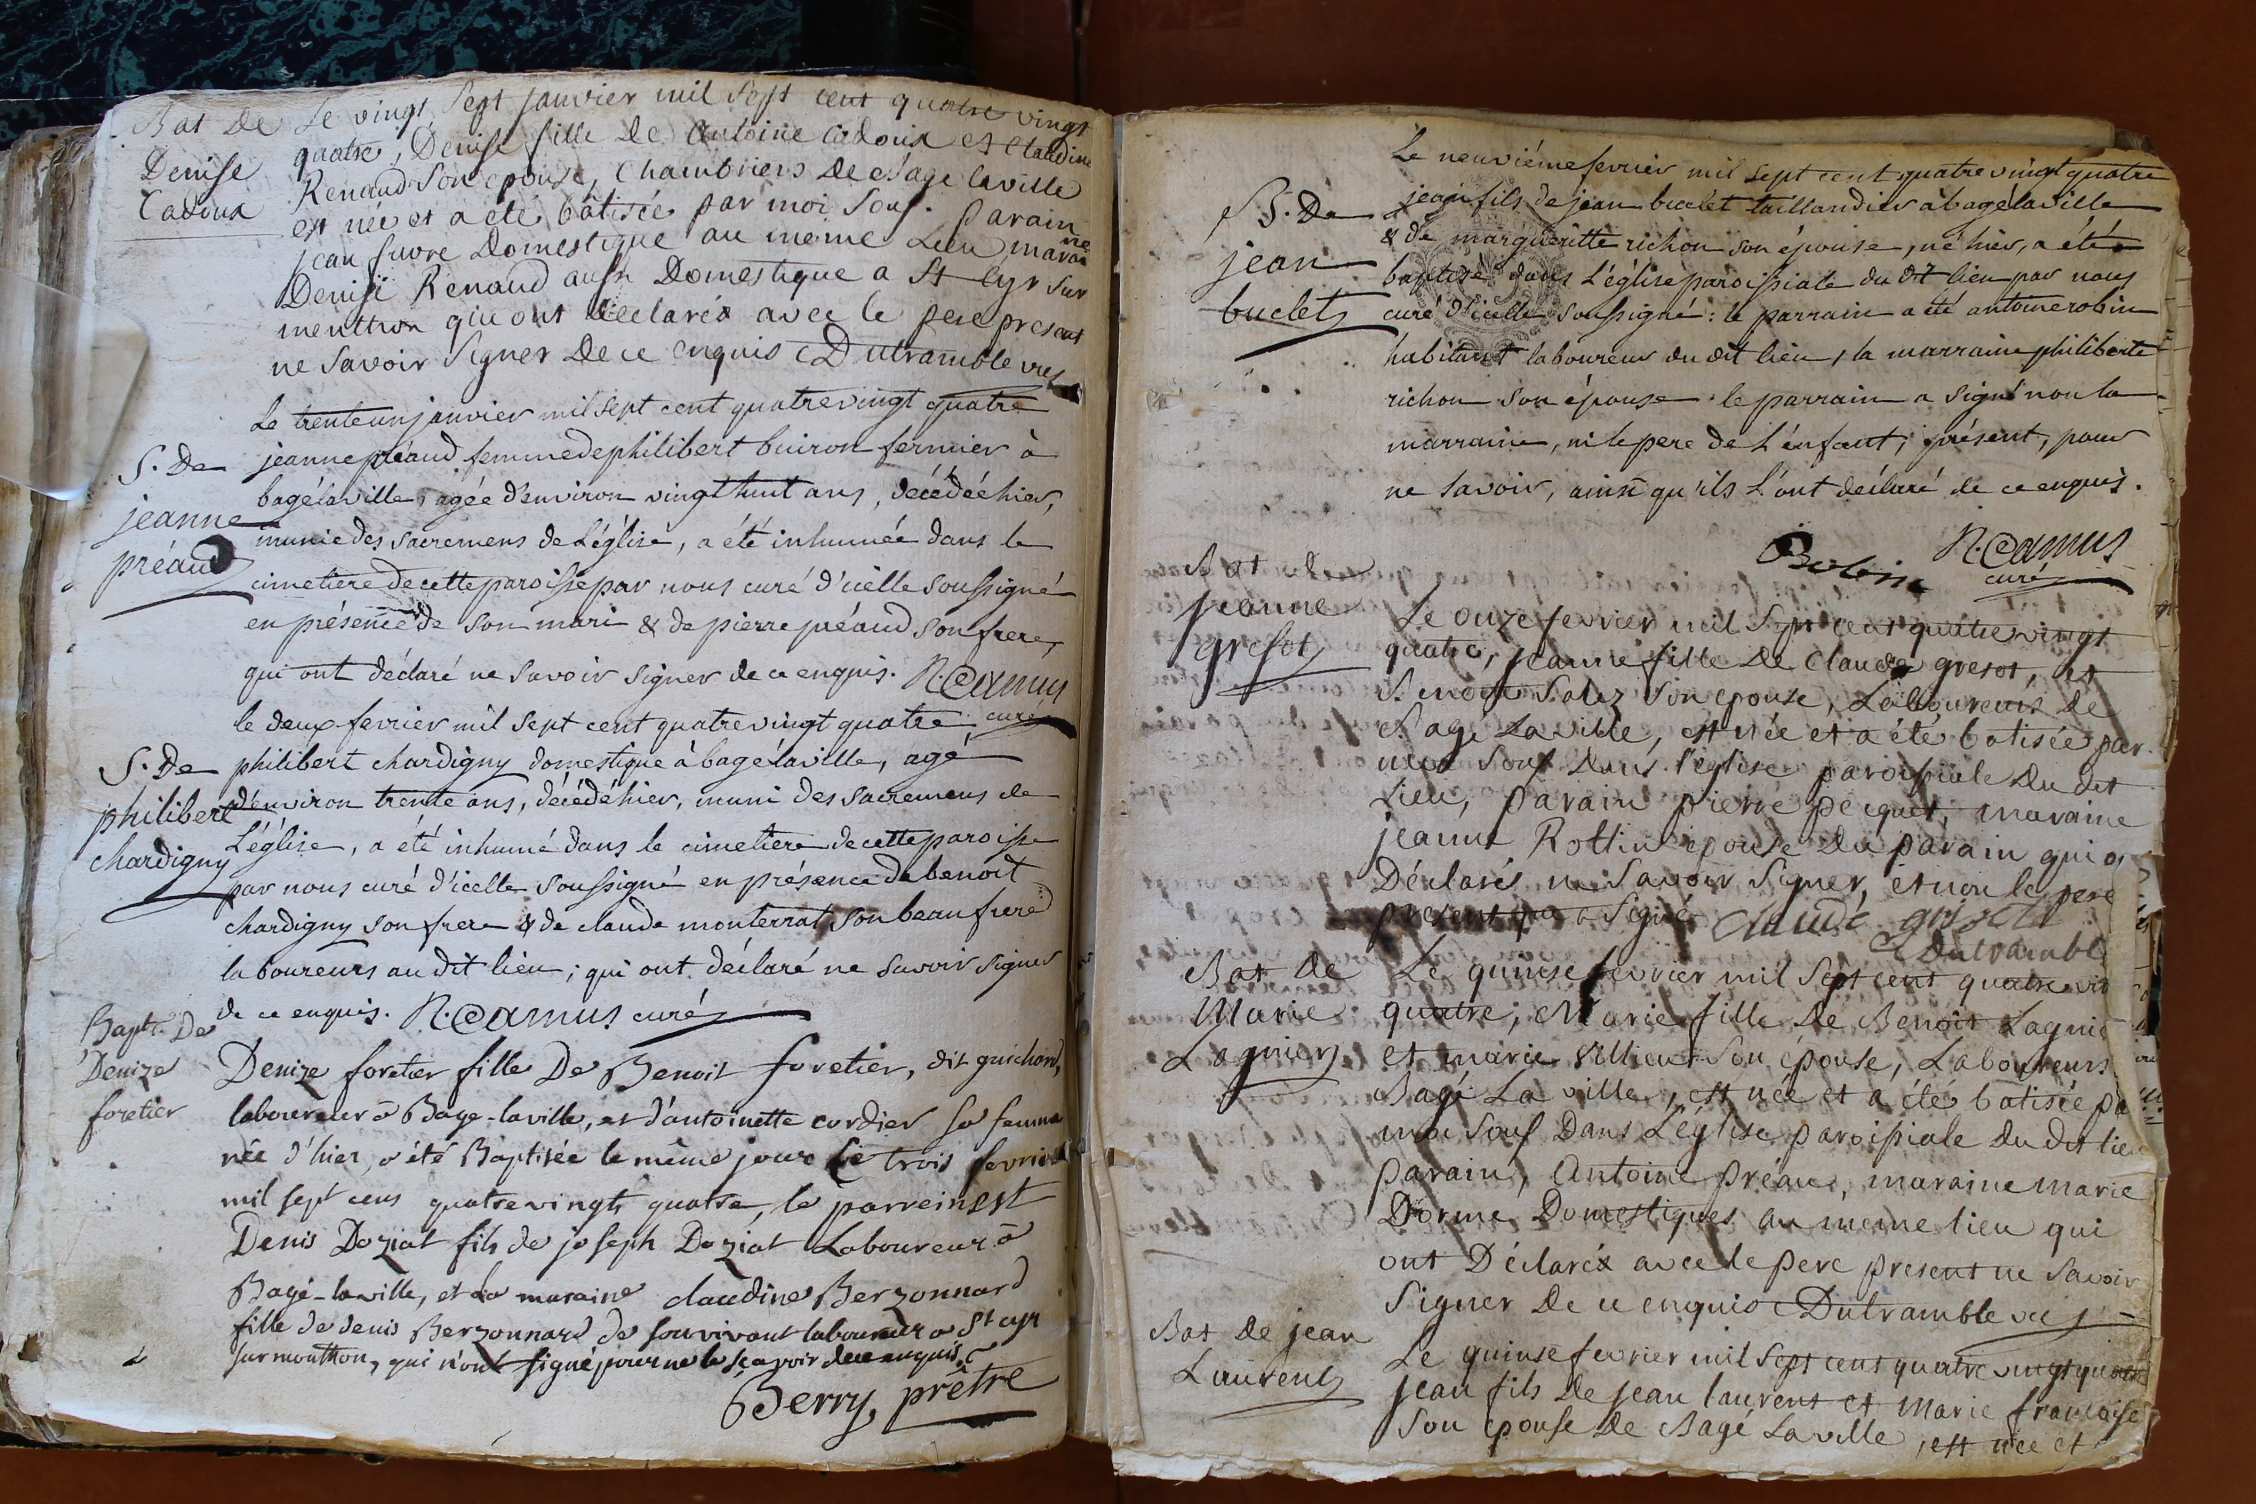 Bat De
Denise
Cadoux
Le vingt sept janvier mil sept cent quatre vingt
quatre, Denise fille de Antoine Cadoux et Claudine
Renaud son epouse, Chambriers de Bage laville
est née et a été bâtisée par moi sous. parain
jean favre Domestique au meme Lieu maraine
Denise Renaud aussi Domestique a St Cyr sur
menthon qui ont déclarés avec le pere present
ne savoir signer De ce enquis Dutramble vic
S. De
jeanne
préaud
Le trente un janvier mil sept cent quatre vingt quatre
jeanne préaud femme de philibert buiron fermier à
bagélaville, agée d'environ vingt huit ans, décédée hier,
munie des sacremens de L'église, a été inhumée dans le
cimetiere de cette paroisse par nous curé d'icelle soussigné
en présence de son mari & de pierre préaud son frere,
qui ont déclaré ne savoir signer de ce enquis. R. Camus
curé
S. De
philibert
chardigny
le deux fevrier mil sept cent quatre vingt quatre
philibert chardigny domestique à bagélaville, agé
d'environ trente ans, décédé hier, muni des sacremens de
L'église, a été inhumé dans le cimetiere de cette paroisse
par nous curé d'icelle soussigné en présence de benoit
chardigny son frere & de claude monterrat son beau frere
laboureurs au dit lieu; qui ont déclaré ne savoir signer
de ce enquis. R. Camus curé
Bapt. De
Denize
foretier
Denize foretier fille De Benoit foretier, dit guichard,
laboureur à Bage-laville, et d'antoinette cordier sa femme
née d'hier, a été Baptisée le même jour Le trois fevrier
mil sept cens quatre vingt quatre, le parrein est
Denis Doziat fils de joseph Doziat Laboureur à
Bagé-laville, et la maraine claudine Berzonnard
fille de denis Berzonnard de son vivant laboureur a St cyr
sur monthon, qui n'ont signé pour ne le sçavoir de ce enquis
Berry, prêtre
S. De
jean
buclet
Le neuviéme fevrier mil sept cent quatre vingt quatre
jean fils de jean buclet taillandier à bagélaville
& de margueritte richon son épouse, né hier, a été
baptisé dans L'église paroissiale du dit lieu par nous
curé d'icelle soussigné: le parrain a été antoine robin
habitant laboureur du dit lieu, la marraine philiberte
richon son épouse le parrain a signé non la
marraine, ni le pere de L'enfant, présent, pour
ne savoir, ainsi qu'ils L'ont déclaré de ce enquis.
Robin R. Camus
curé
Bat de
jeanne
gresot
Le onze fevrier mil sept cent quatre vingt
quatre, jeanne fille De Claude gresot, et
Benoite Salez son epouse, Laboureurs de
Bage Laville, est née et a été batisée par
moi sous Dans l'église paroissiale Du dit
Lieu, parain pierre pecquet, maraine
jeanne Rollin epouse Du parain qui o
Déclarés ne savoir signer, et non le pere
present qui a signé Claude gresot
Dutrambl
Bat De
Marie
Lagnier
Le quinse fevrier mil sept cent quatre vin
quatre, Marie fille De Benoit Lagnie
et marie Villieu son épouse, Laboureurs
Bagé La ville, est née et a été batisée pa
moi sous Dans L'église paroissiale Du dit lieu
parain, Antoine préau, maraine marie
Dorme Domestiques au meme lieu qui
ont Déclarés avec le pere present ne savoir
signer De ce enquis Dutramble vic
Bat De jean
Laurent
Le quinse fevrier mil sept cent quatre vingt quatre
jean fils De jean laurent et marie francoise
son epouse De Bagé Laville, est née et